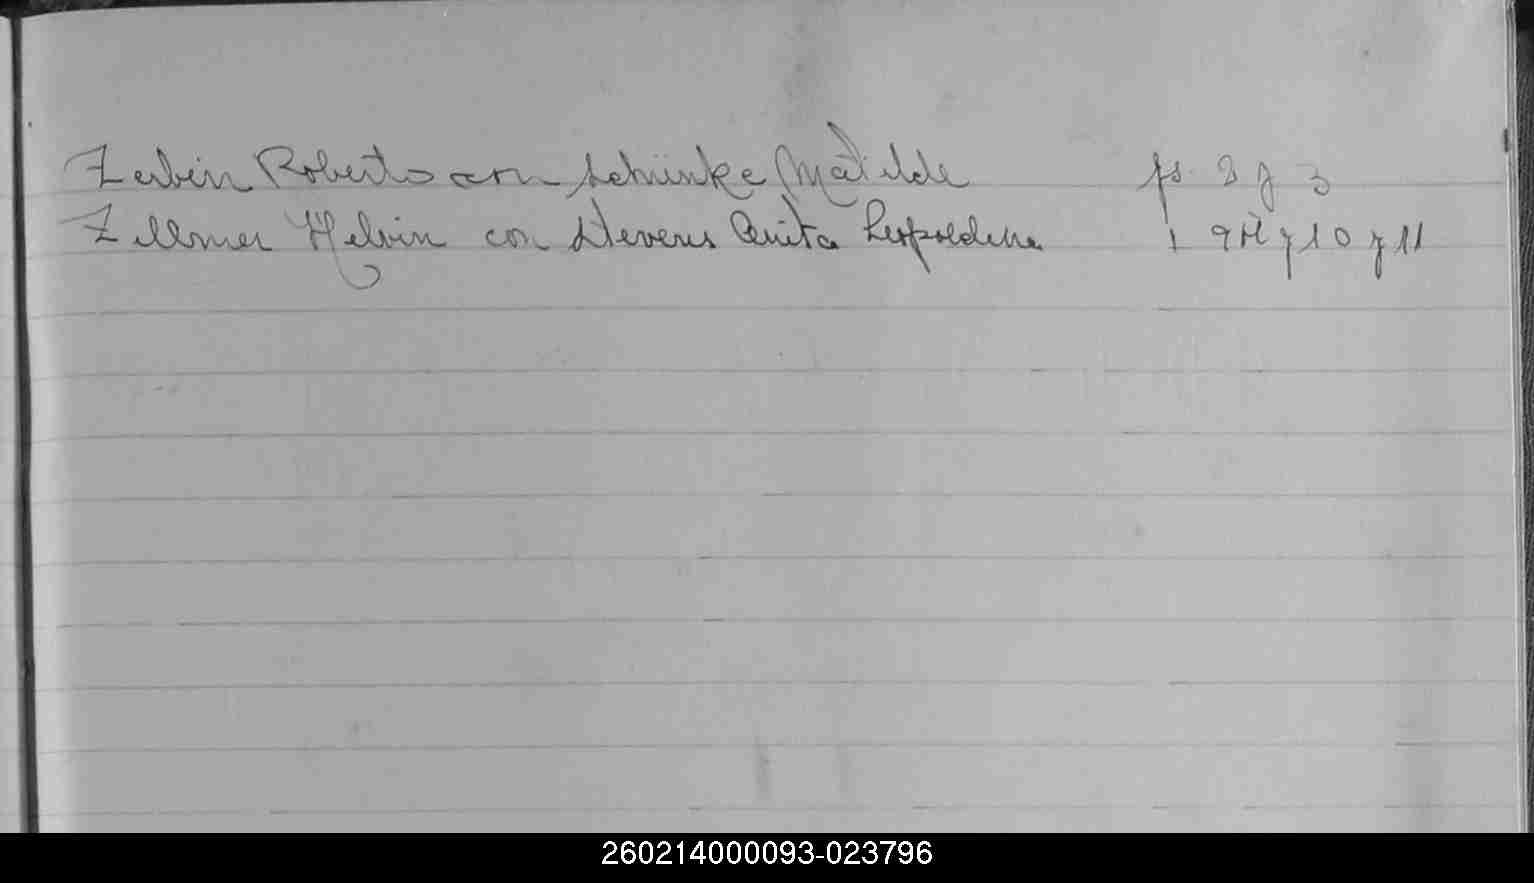 Zerbin Roberto con Schünke Matilde fs. 2 y 3
Zillmer Helvin con Stevens Anita Leopoldina 9 y 10 y 11
260214000093-023796